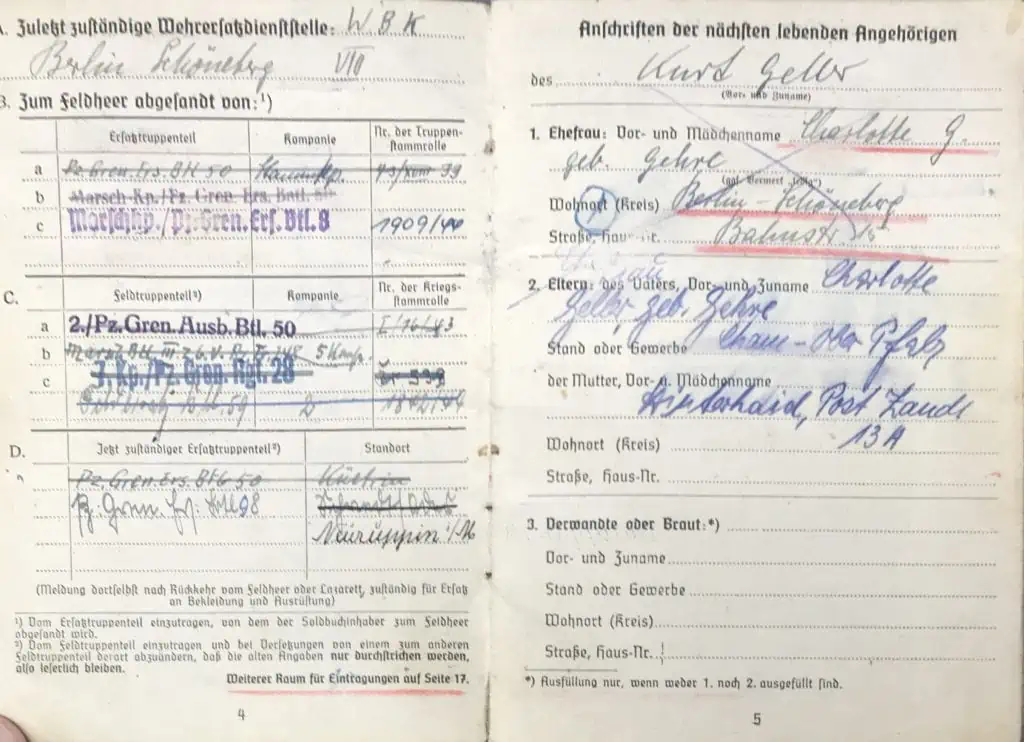 A. Zuletzt zuständige Wehrersatzdienststelle: W B K
Berlin Schöneberg VIII
B. Zum Feldheer abgesandt von:¹)
Ersatztruppenteil Kompanie Nr. der Truppenstammrolle
a Pz. Gren. Ers. Btl. 50 Stammkp.
b Marsch-Kp./Pz. Gren. Ers. Batl.
c Marschkp./Pz. Gren. Ers. Btl. 8 1909/44
C. Feldtruppenteil²) Kompanie Nr. der Kriegsstammrolle
a 2./Pz. Gren. Ausb. Btl. 50 I/16/43
b Marsch Btl. III z.b.V. 5 Komp.
c 7. Kp./Pz. Gren. Rgt. 28
D. Jetzt zuständiger Ersatztruppenteil²) Standort
Pz. Gren. Ers. Btl. 50 Küstrin
Pz. Gren. Ers. Btl. 8
Neuruppin
(Meldung dortselbst nach Rückkehr vom Feldheer oder Lazarett, zuständig für Ersatz
an Bekleidung und Ausrüstung)
¹) Vom Ersatztruppenteil einzutragen, von dem der Soldbuchinhaber zum Feldheer
abgesandt wird.
²) Vom Feldtruppenteil einzutragen und bei Versetzungen von einem zum anderen
Feldtruppenteil derart abzuändern, daß die alten Angaben nur durchstrichen werden,
also leserlich bleiben.
Weiterer Raum für Eintragungen auf Seite 17.
4
Anschriften der nächsten lebenden Angehörigen
des Kurt Geller
(Vor- und Zuname)
1. Ehefrau: Vor- und Mädchenname Charlotte G.
geb. Gehre
(ggf. Vermerk „ledig")
Wohnort (Kreis) Berlin-Schöneberg
Straße, Haus-Nr. Bahnstr.
2. Eltern: des Vaters, Vor- und Zuname Charlotte
Geller, geb. Gehre
Stand oder Gewerbe Cham - Ober Pfalz
der Mutter, Vor- u. Mädchenname
Hinterhaid, Post Zandt
Wohnort (Kreis) 13 A
Straße, Haus-Nr.
3. Verwandte oder Braut:*)
Vor- und Zuname
Stand oder Gewerbe
Wohnort (Kreis)
Straße, Haus-Nr.
*) Ausfüllung nur, wenn weder 1. noch 2. ausgefüllt sind.
5